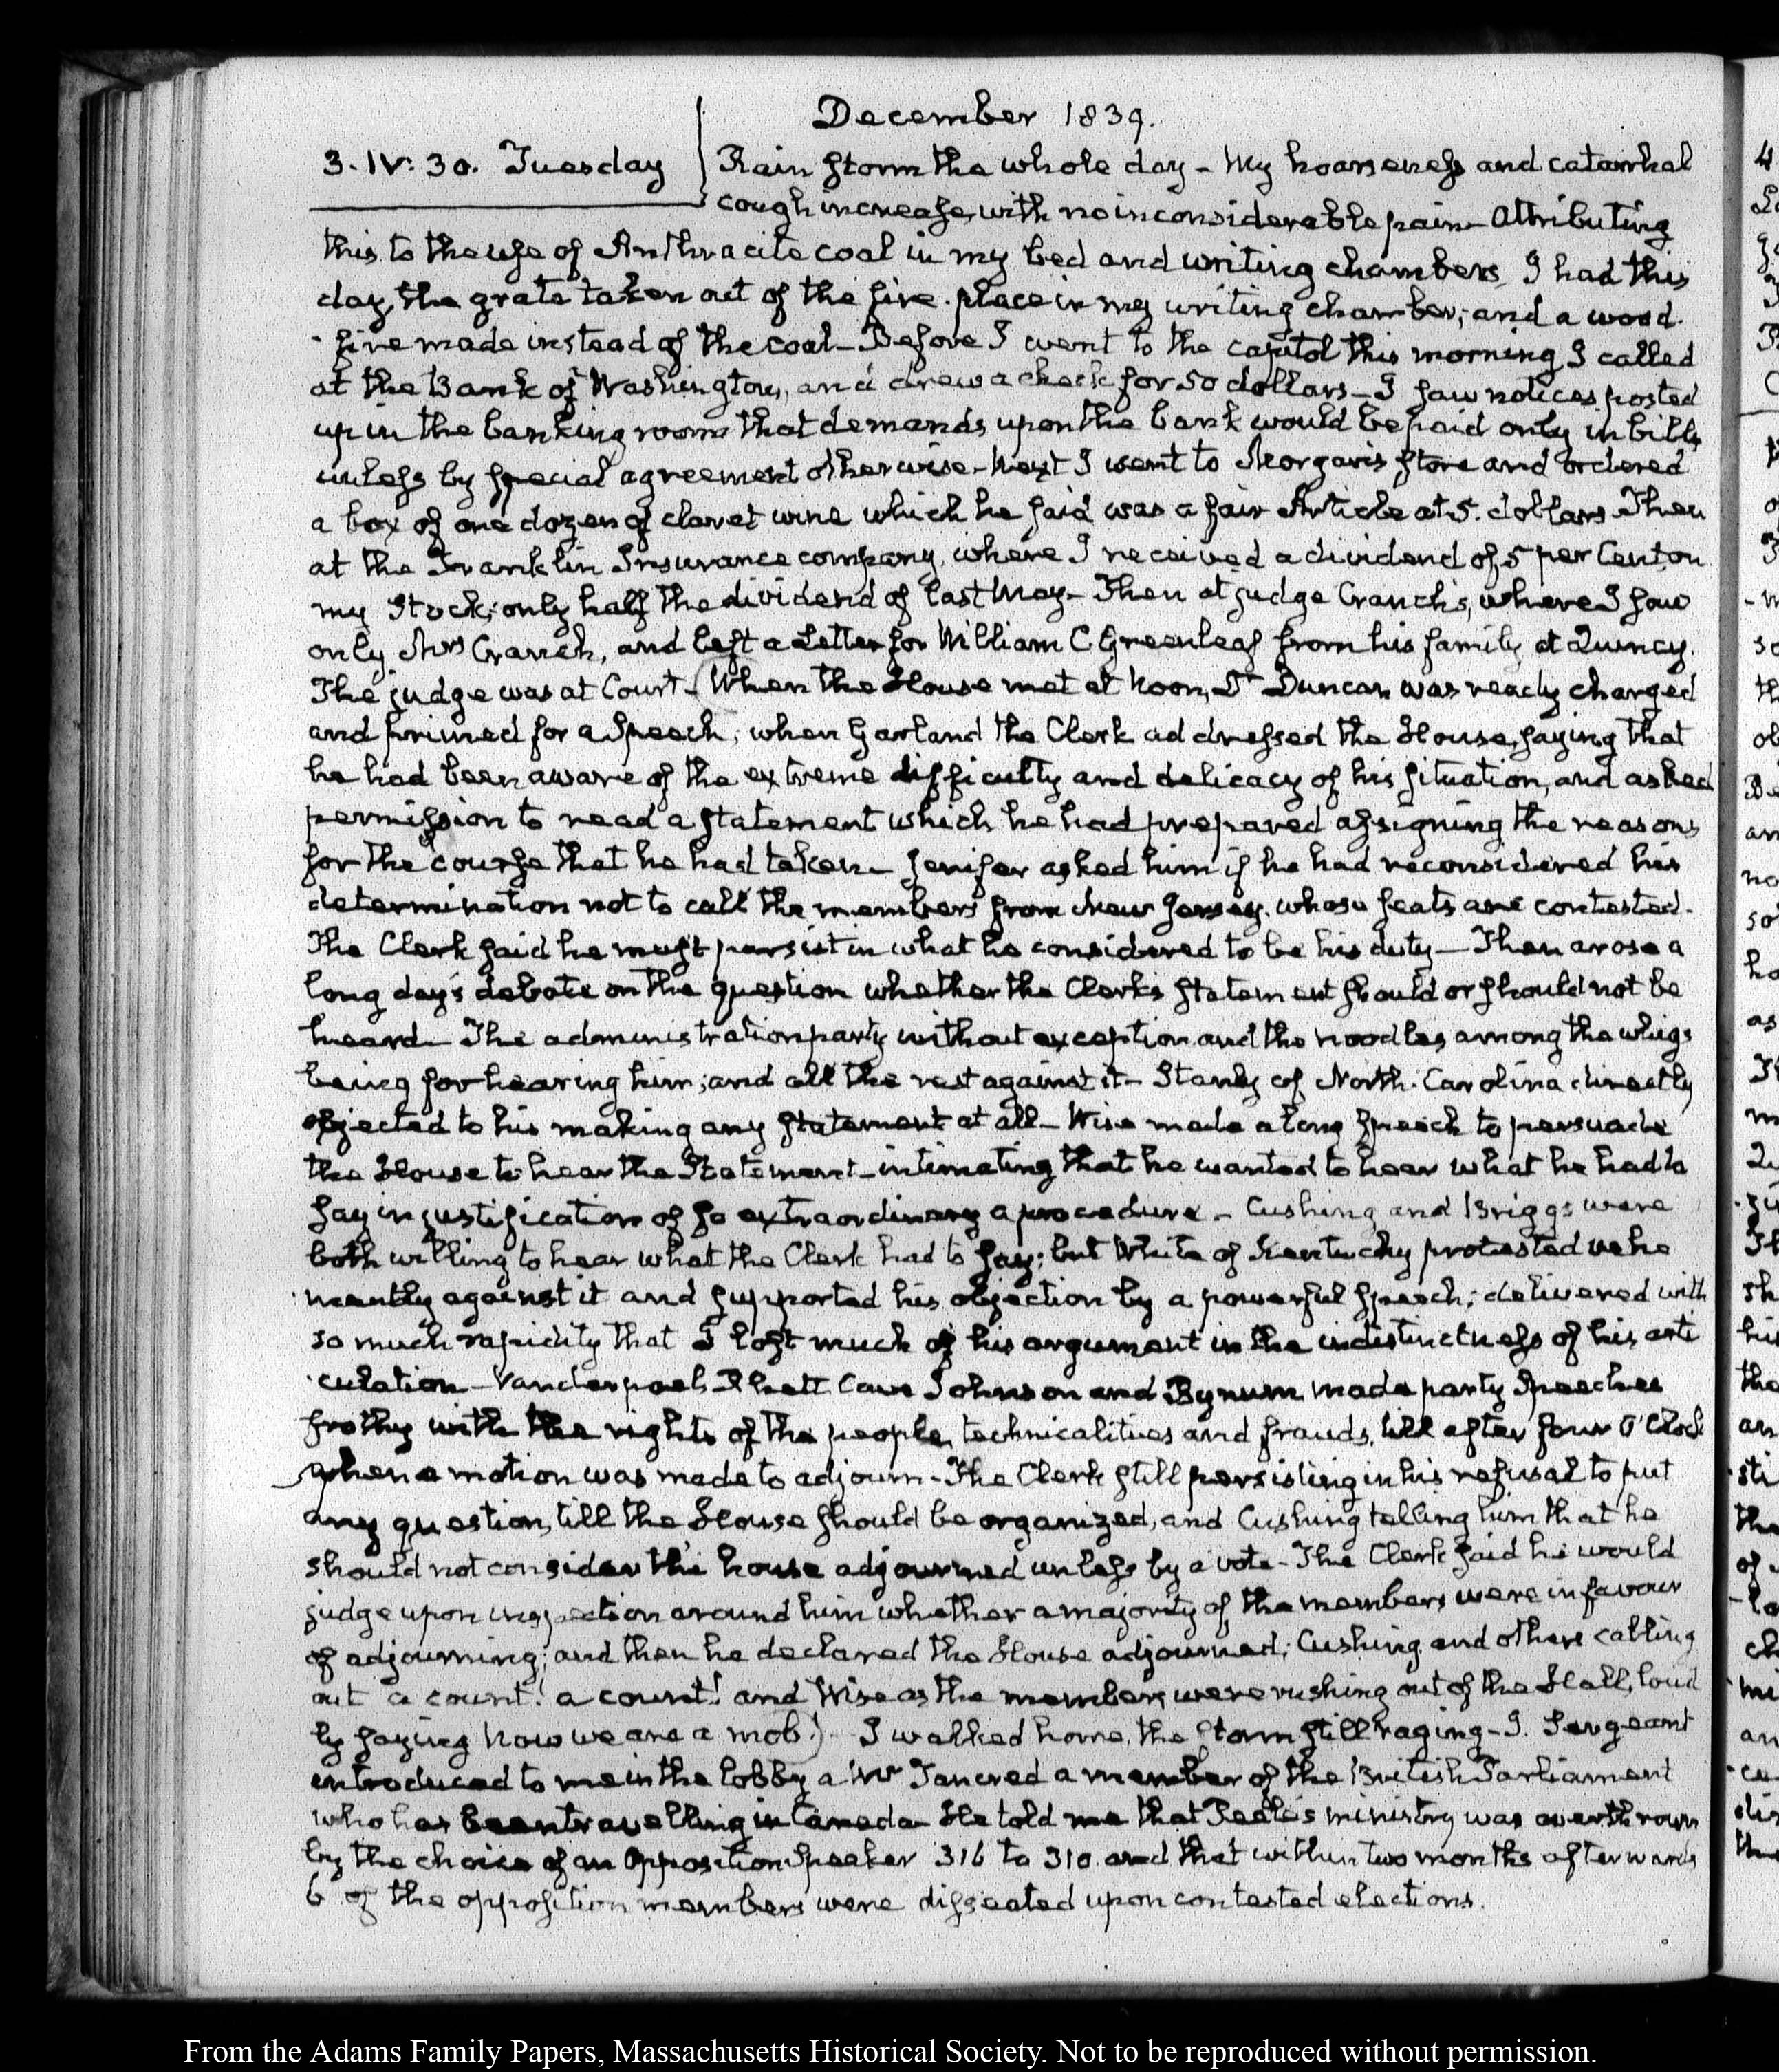 December 1839.
3. IV: 30. Tuesday
Rain Storm the whole day - My hoarseness and catarrhal
cough increase, with no inconsiderable pain - Attributing
this to the use of Anthracite coal in my bed and writing chambers, I had this
day, the grate taken out of the fire-place in my writing chamber; and a wood
fire made instead of the coal - Before I went to the Capitol this morning I called
at the Bank of Washington, and drew a check for 50 dollars - I saw notices posted
up in the banking room that demands upon the bank would be paid only in bills
unless by special agreement otherwise - Next I went to Morgan's store and ordered
a box of one dozen of claret wine which he said was a fair Article at 5. dollars. Then
at the Franklin Insurance company, where I received a dividend of 5 per Cent on
my Stock; only half the dividend of last May - Then at judge Cranch's, where I saw
only Mrs Cranch, and left a Letter for William C Greenleaf from his family at Quincy.
The judge was at Court - (When the House met at Noon, Dr Duncan was ready charged
and primed for a Speech, when Garland the Clerk addressed the House, saying that
he had been aware of the extreme difficulty and delicacy of his situation, and asked
permission to read a statement which he had prepared assigning the reasons
for the course that he had taken - Jenifer asked him if he had reconsidered his
determination not to call the members from New Jersey, whose seats are contested.
The Clerk said he must persist in what he considered to be his duty - Then arose a
long day's debate on the question whether the Clerk's statement should or should not be
heard - The administration party without exception and the noodles among the whigs
being for hearing him; and all the rest against it - Stanly of North-Carolina directly
objected to his making any statement at all - Wise made a long speech to persuade
the House to hear the Statement - intimating that he wanted to hear what he had to
say in justification of so extraordinary a procedure - Cushing and Briggs were
both willing to hear what the Clerk had to say; but White of Kentucky protested vehe
mently against it and supported his objection by a powerful speech; delivered with
so much rapidity that I lost much of his argument in the indistinctness of his arti
culation - Vanderpoel, Rhett Cave Johnson and Bynum made party Speeches
frothy with the rights of the people, technicalities and frauds, till after four O'Clock
when a motion was made to adjourn - The Clerk still persisting in his refusal to put
any question, till the House should be organized, and Cushing telling him that he
should not consider the house adjourned unless by a vote - The Clerk said he would
judge upon inspection around him whether a majority of the members were in favour
of adjourning; and then he declared the House adjourned; Cushing and others calling
out a count! a count! and Wise as the members were rushing out of the Hall, loud
ly saying Now we are a mob!) - I walked home, the Storm still raging - J. Sergeant
introduced to me in the lobby a Mr Tancred a member of the British Parliament
who has been travelling in Canada - He told me that Peele's ministry was overthrown
by the choice of an Opposition Speaker 316 to 310. and that within two months afterwards
6 of the opposition members were disseated upon contested elections.
From the Adams Family Papers, Massachusetts Historical Society. Not to be reproduced without permission.